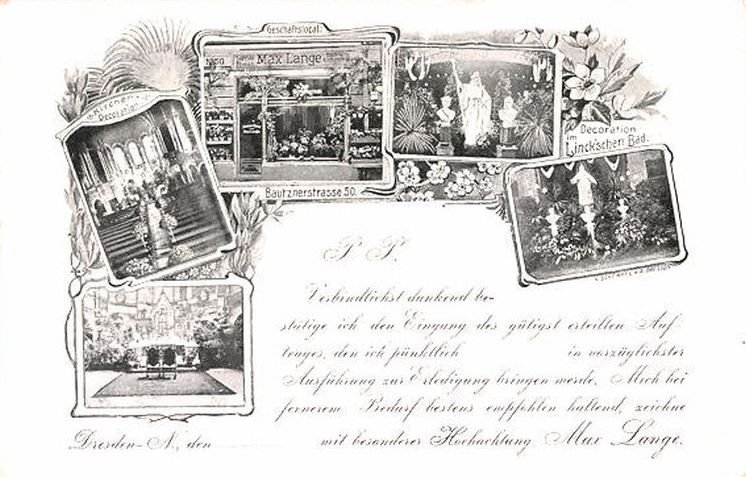 Geschäftslocal.
Max Lange
50
Kirchen-
Decoration.
Bautznerstrasse 50.
Decoration
im
Linck'schen Bad.
P. P.
Verbindlichst dankend be-
stätige ich den Eingang des gütigst erteilten Auf-
trages, den ich pünktlich in vorzüglichster
Ausführung zur Erledigung bringen werde. Mich bei
fernerem Bedarf bestens empfohlen haltend, zeichne
Dresden-N., den mit besonderer Hochachtung Max Lange.